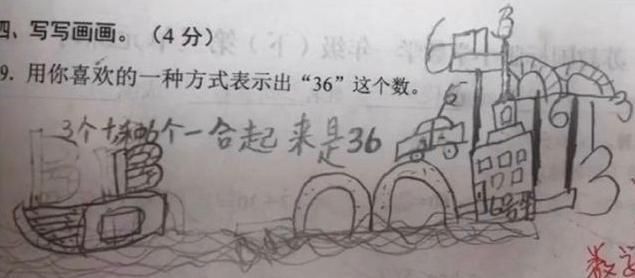 四、写写画画。（4分）
9. 用你喜欢的一种方式表示出“36”这个数。
3个十和6个一合起来是36
6
3
6
3
6
3